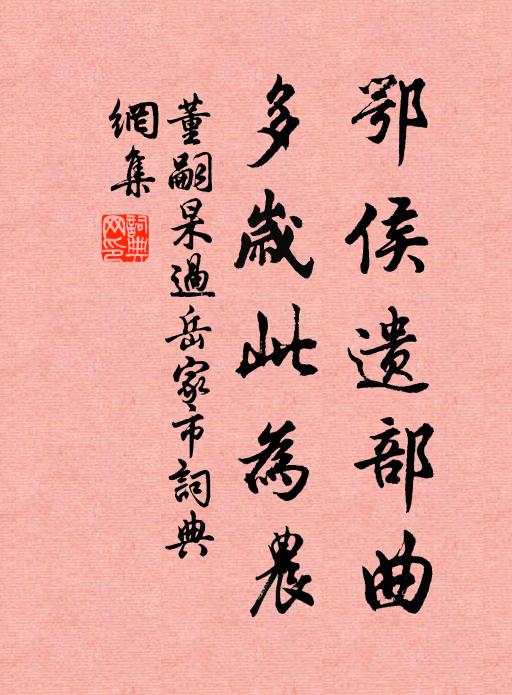 鄂侯遗部曲
多歲此為農
董嗣杲過岳家市詞典
網集
詞典網印